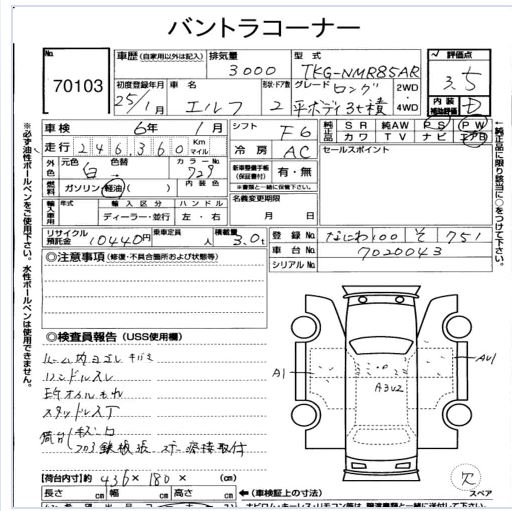 バントラコーナー
No. 70103
車歴 (自家用以外は記入)
排気量 3000
型式 TKG-NMR85AR
初度登録年月 25/1月
車名 エルフ
形状・ドア数 2
グレード ロング
平ボディ3t積
2WD・4WD
評価点 3.5
内装補助評価 D
車検 6年 1月
シフト F6
純正品 SR 純AW PS PW
カワ TV ナビ エアB
走行 246,360 Km マイル
冷房 AC
セールスポイント
外色 元色 白 色替 カラーNo. 729
燃料 ガソリン・軽油・( ) 内装色
新車整備手帳(保証書付) 有・無
※書類と一緒に保管下さい。
輸入車用 年式 輸入区分 ハンドル
ディーラー・並行 左・右
名義変更期限
月 日
リサイクル預託金 10440円
乗車定員 人
積載量 3.0t
登録No. なにわ100 そ 751
車台No. 7020043
シリアルNo.
◎注意事項 (修復・不具合箇所および状態等)
◎検査員報告 (USS使用欄)
ルーム内ヨゴレ キバミ
ハンドルスレ
E/Gオイルもれ
スタッドレスT
荷台
フロア鉄板張
A1
A3U2
AU1
欠
スペア
【荷台内寸】約 436 × 180 × (cm)
長さ cm 幅 cm 高さ cm
←(車検証上の寸法)
※必ず油性ボールペンをご使用下さい。水性ボールペンは使用できません。
←純正品に限り該当に○をつけて下さい。